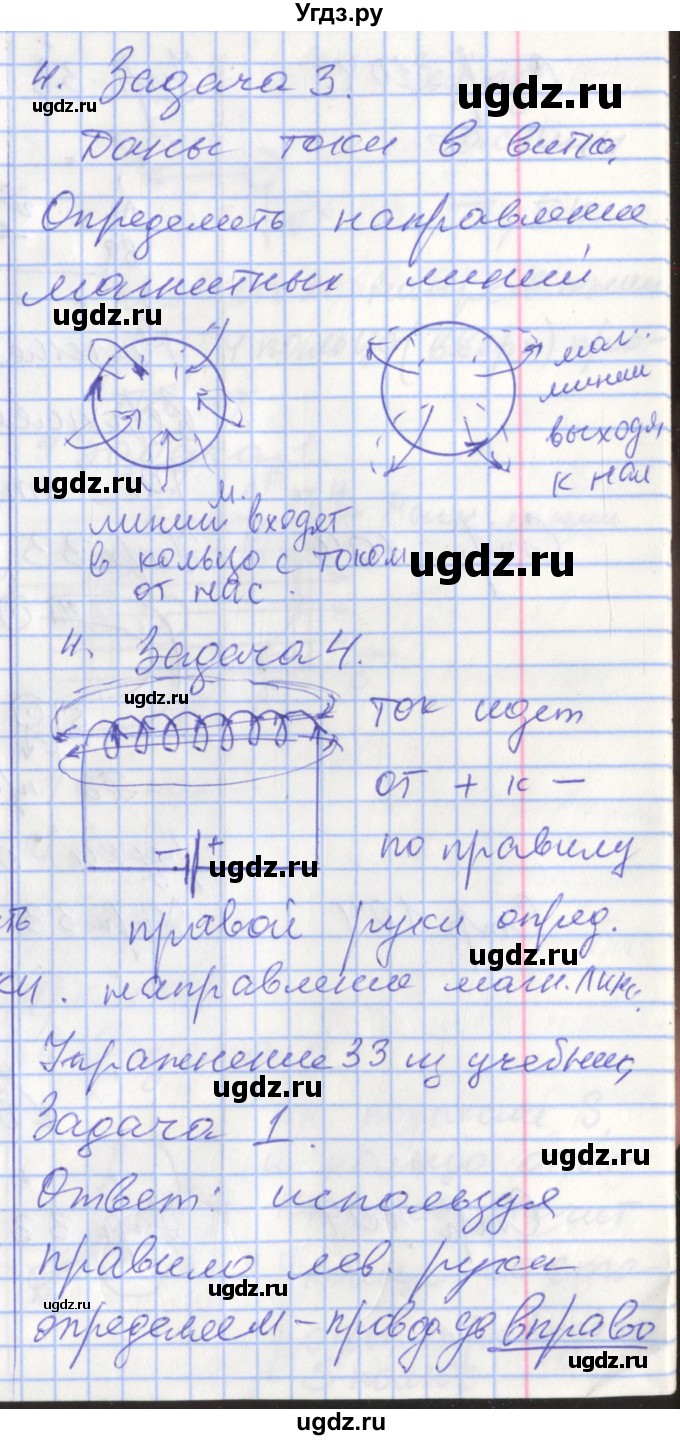 Угдз.ру
4. Задача 3.
ugdz.ru
ugdz.ru
Даны токи в витке.
Определить направление
магнитных линий
ugdz.ru
маг.
линии
выходят
к нам
ugdz.ru
м.
линии входят
в кольцо с током
от нас.
ugdz.ru
4. Задача 4.
ugdz.ru
ток идет
от + к –
– +
ugdz.ru
по правилу
правой руки опред.
ugdz.ru
направление магн. лин.
Упражнение 33 из учебник
ugdz.ru
Задача 1.
ugdz.ru
Ответ: используя
правило лев. руки
ugdz.ru
ugdz.ru
определяем – провод вправо
ugdz.ru
ugdz.ru